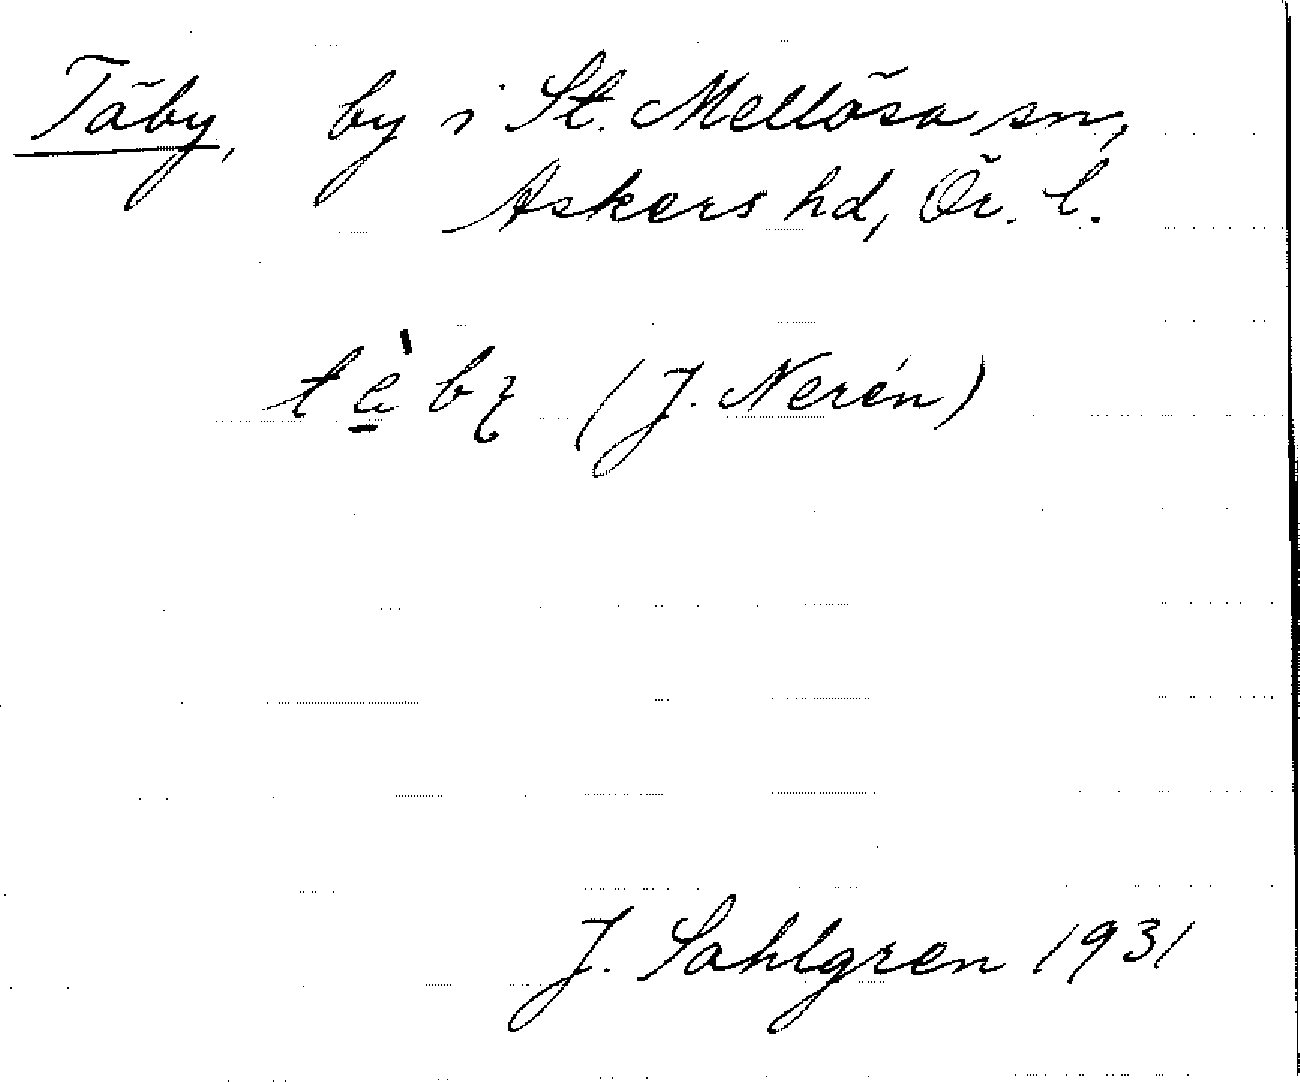 Täby, by i St. Mellösa sn,
Askers hd, Ör. l.
tä̀by (J. Nerén)
J. Sahlgren 1931